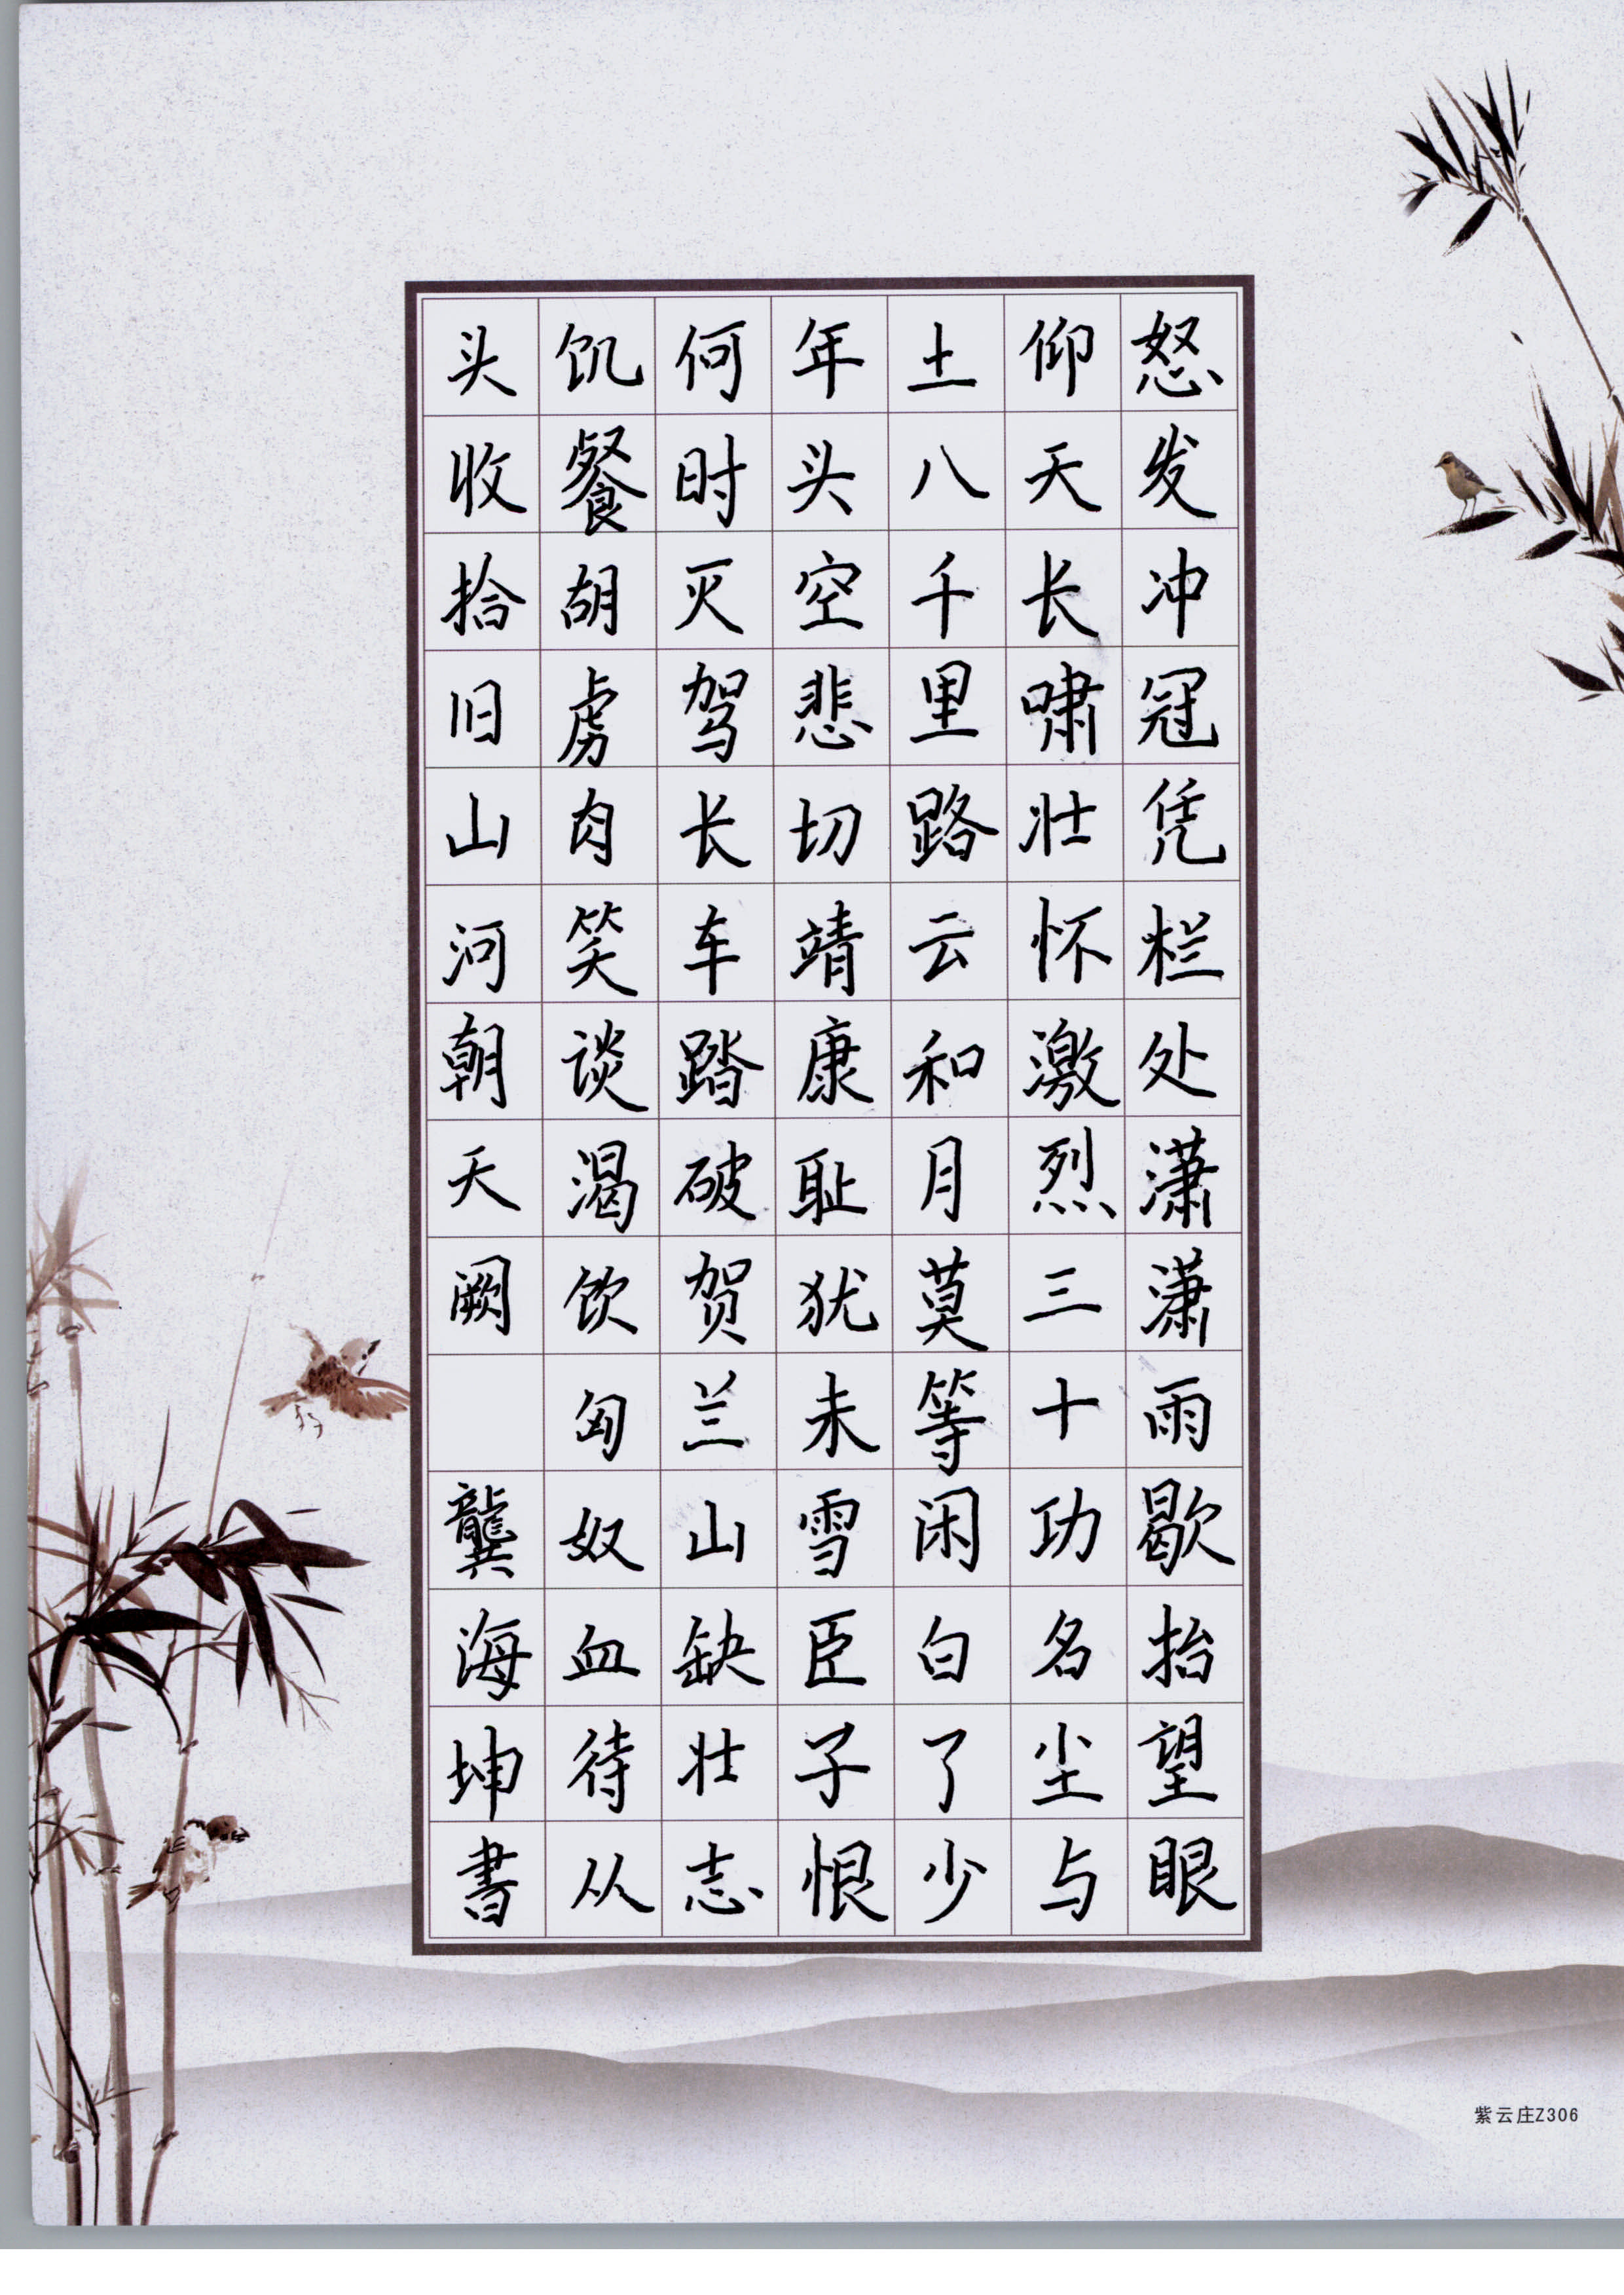 怒发冲冠凭栏处潇潇雨歇抬望眼
仰天长啸壮怀激烈三十功名尘与
土八千里路云和月莫等闲白了少
年头空悲切靖康耻犹未雪臣子恨
何时灭驾长车踏破贺兰山缺壮志
饥餐胡虏肉笑谈渴饮匈奴血待从
头收拾旧山河朝天阙 龔海坤书
紫云庄Z306